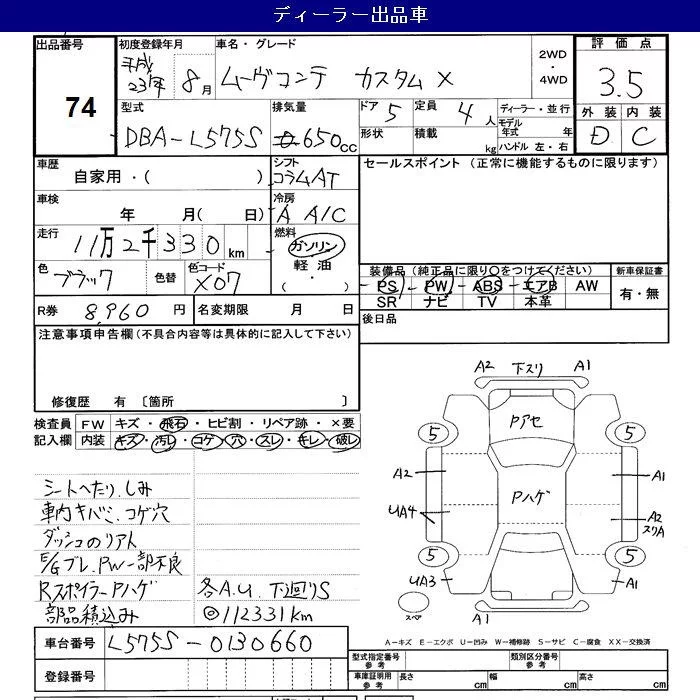 ディーラー出品車
出品番号 初度登録年月 車名・グレード 2WD ・ 4WD 評価点
74 平成 23年 8月 ムーヴコンテ カスタム X 3.5
型式 排気量 ドア 5 定員 4人 ディーラー・並行 外装 内装
DBA-L575S 650cc 形状 積載 kg モデル年式 年 D C
ハンドル 左・右
車歴 シフト セールスポイント (正常に機能するものに限ります)
自家用・( ) コラムAT
車検 冷房
年 月( 日) A A/C
走行 燃料
11万2千330km ガソリン
色 色替 色コード 軽油 装備品 (純正品に限り○をつけてください) 新車保証書
ブラック X07 ・( ) PS PW ABS エアB AW 有・無
SR ナビ TV 本革
R券 8,960円 名変期限 月 日 後日品
注意事項申告欄 (不具合内容等は具体的に記入して下さい)
修復歴 有 〔箇所 〕
検査員 FW キズ・飛石・ヒビ割・リペア跡・×要
記入欄 内装 キズ・汚レ・コゲ・穴・スレ・キレ・破レ
A2 下スリ A1
Pアセ
5 5
A2 Pハゲ A1
UA4 A2
スリA
5 5
UA3 A1
スペア
シートへたり、しみ
車内キバミ、コゲ穴
ダッシュのリアト
E/Gブレ、PW一部不良
RスポイラーPハゲ 各A.U. 下廻りS
部品積込み ◎112331km
A－キズ E－エクボ U－凹み W－補修跡 S－サビ C－腐食 XX－交換済
車台番号 L575S-0130660
型式指定番号 参考 類別区分番号 参考
登録番号 車庫証明用 参考 長さ cm 幅 cm 高さ cm